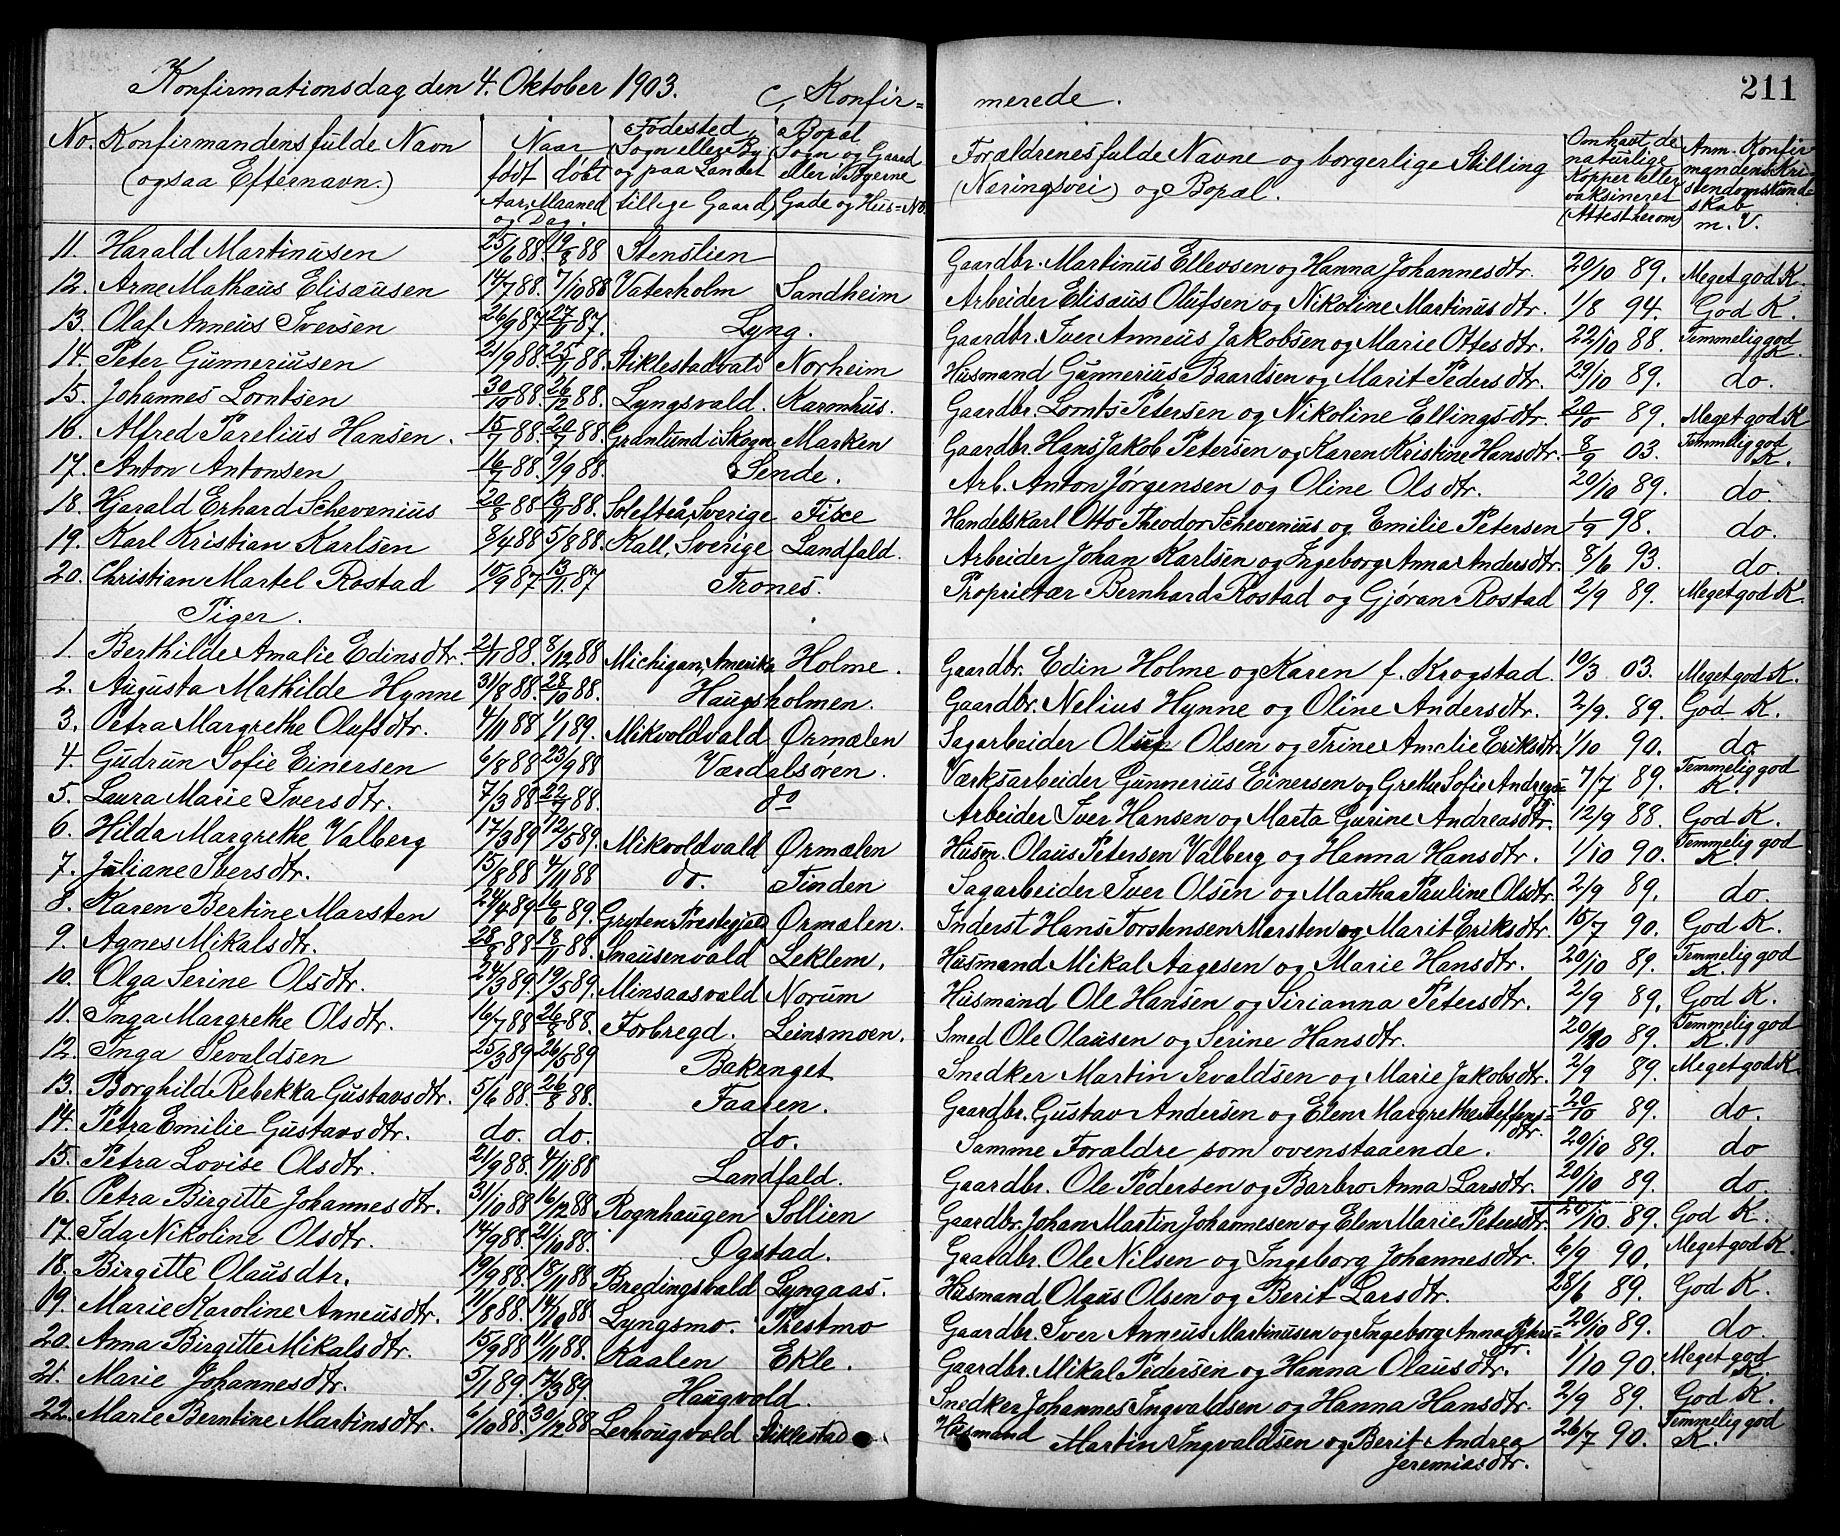 Konfirmationsdag den 4. Oktober 1903. C, Konfir= merede. 211
No. Konfirmandens fulde Navn (ogsaa Efternavn.) Naar født døbt Aar, Maaned og Dag. Fødested, Sogn eller By og paa Landet tillige Gaard) Bopæl Sogn og Gaard eller i Byerne Gade og Hus=No. Forældrenes fulde Navne og borgerlige Stilling (Næringsvei) og Bopæl. Om havt de naturlige Kopper eller vaksineret (Attest herom) Anm. Konfirmandens Kristendomskundskab m. V.
11. Harald Martinusen 25/6 88. 19/8 88 Stenslien Gaardbr. Martinus Ellevsen og Hanna Johannesdtr. 20/10 89. Meget god K.
12. Arne Mathæus Elisæusen 14/7 88. 7/10 88 Vaterholm Sandheim Arbeider Elisæus Olufsen og Nikoline Martinusdtr. 1/8 94. God K.
13. Olaf Anneus Iversen 26/9 87 27/11 87. Lyng. Gaardbr. Iver Anneus Jakobsen og Marie Ottesdtr. 22/10 88. Temmelig god K.
14. Peter Gunneriusen 21/9 88. 25/11 88. Stiklestadvald Norheim Husmand Gunnerius Baardsen og Marit Pedersdtr. 29/10 89. do.
15. Johannes Lorntsen 30/10 88. 26/12 88. Lyngsvald. Karmhus. Gaardbr. Lornts Petersen og Nikoline Ellingsdtr. 20/10 89. Meget god K
16. Alfred Parelius Hansen. 15/7 88. 20/7 88. Grønlund i Skogn Marken Gaardbr. Hans Jakob Petersen og Karen Kristine Hansdtr. 8/9 03. Temmelig god K.
17. Anton Antonsen 16/7 88. 9/9 88 Sende. Arb. Anton Jørgensen og Oline Olsdtr. 20/10 89. do.
18. Hjarald Erhard Schevenius 20/8 88 13/11 88. Solefteå, Sverige Fixe Handelskarl Otto Theodor Schevenius og Emilie Petersen 1/9 98. do.
19. Karl Kristian Karlsen 3/4 88 5/8 88. Kall, Sverige Landfald. Arbeider Johan Karlsen og Ingeborg Anna Andersdtr. 8/6 93. do.
20. Christian Martel Rostad 10/9 87 13/11 87 Trones. Proprietær Bernhard Rostad og Gjøran Rostad 2/9 89. Meget god K.
Piger.
1. Berthilde Amalie Edinsdtr. 2/11 88. 8/12 88 Michigan, Amerika Holme. Gaardbr. Edin Holme og Karen f. Krogstad. 10/3 03. Meget god K.
2. Augusta Mathilde Hynne 31/8 88. 28/10 88. Haugsholmen. Gaardbr. Nelius Hynne og Oline Andersdtr. 2/9. 89. God K.
3. Petra Margrethe Olufsdtr. 4/11 88 1/1 89. Mikvoldvald Ørmælen Sagarbeider Oluf Olsen og Trine Amalie Eriksdtr. 1/10 90. do
4. Gudrun Sofie Einersen 6/8 88 23/9 88 Værdalsøren. Værksarbeider Gunnerius Einersen og Grethe Sofie Andreas= 7/7 89. Temmelig god K.
5. Laura Marie Iversdtr. 7/3 88 22/7 88. do Arbeider Iver Hansen og Marta Gurine Andreasdtr. 12/9 88. God K.
6. Hilda Margrethe Valberg 17/3 89 12/5 89. Mikvoldvald Ørmælen Husm. Olaus Petersen Valberg og Hanna Hansdtr. 1/10 90. Temmelig god K.
7. Juliane Iversdtr. 15/8 88 4/11 88 do. Tinden Sagarbeider Iver Olsen og Martha Pauline Olsdtr. 2/9 89. do.
8. Karen Bertine Marsten 24/4 89 16/6 89. Gryten Prestegjeld Ørmælen. Inderst Hans Torstensen Marsten og Marit Eriksdtr. 15/7 90. God K.
9. Agnes Mikalsdtr. 28/8 88 18/11 88. Snausenvald Leklem. Husmand Mikal Aagesen og Marie Hansdtr. 20/10 89. Temmelig god K.
10. Olga Serine Olsdtr. 24/3 89. 19/5 89. Minsaasvald Norum Husmand Ole Hansen og Sirianna Petersdtr. 2/9 89. God K.
11. Inga Margrethe Olsdtr. 16/7 88 26/8 88. Forbregd. Leinsmoen. Smed Ole Olausen og Serine Hansdtr. 20/10 89. Temmelig god K.
12. Inga Sevaldsen 25/3 89 26/5 89 Bakenget Snedker Martin Sevaldsen og Marie Jakobsdtr. 2/9 89. Meget god K.
13. Borghild Rebekka Gustavsdtr. 5/6 88. 26/8 88. Faaren. Gaardbr. Gustav Andersen og Elen Margrethe Steffens=dtr. 20/10 89. do.
14. Petra Emilie Gustavsdtr. do. do. do. Samme Forældre som ovenstaaende. 20/10 89. do
15. Petra Lovise Olsdtr. 2/9 88. 4/11 88 Landfald. Gaardbr. Ole Pedersen og Barbro Anna Larsdtr. 20/10 89. do
16. Petra Birgitte Johannesdtr. 31/10 88 16/12 88 Rognhaugen Sollien Gaardbr. Johan Martin Johannesen og Elen Marie Petersdtr. 20/10 89. God K.
17. Ida Nikoline Olsdtr. 14/9 88. 21/10 88. Øgstad. Gaardbr. Ole Nilsen og Ingeborg Johannesdtr. 6/9 90. Meget god K.
18. Birgitte Olausdtr. 19/9 88. 18/11 88 Bredingsvald Lyngaas. Husmand Olaus Olsen og Berit Larsdtr. 28/6 89. God K.
19. Marie Karoline Anneusdtr. 11/8 88. 14/10 88 Lyngsmo. Prestmo Gaardbr. Iver Anneus Martinusen og Ingeborg Anna Peters=dtr. 20/10 89. do.
20. Anna Birgitte Mikalsdtr. 15/9 88 11/11 88. Kaalen Ekle. Gaardbr. Mikal Pedersen og Hanna Olausdtr. 1/10 90. Meget god K.
21. Marie Johannesdtr. 5/1 89. 17/3 89. Haugvold. Snedker Johannes Ingvaldsen og Hanna Hansdtr. 2/9 89. God K.
22. Marie Berntine Martinsdtr. 6/10 88. 30/12 88 Lerhougvold Stiklestad Husmand Martin Ingvaldsen og Berit Andrea Jeremiasdtr. 26/7 90. Temmelig god K.